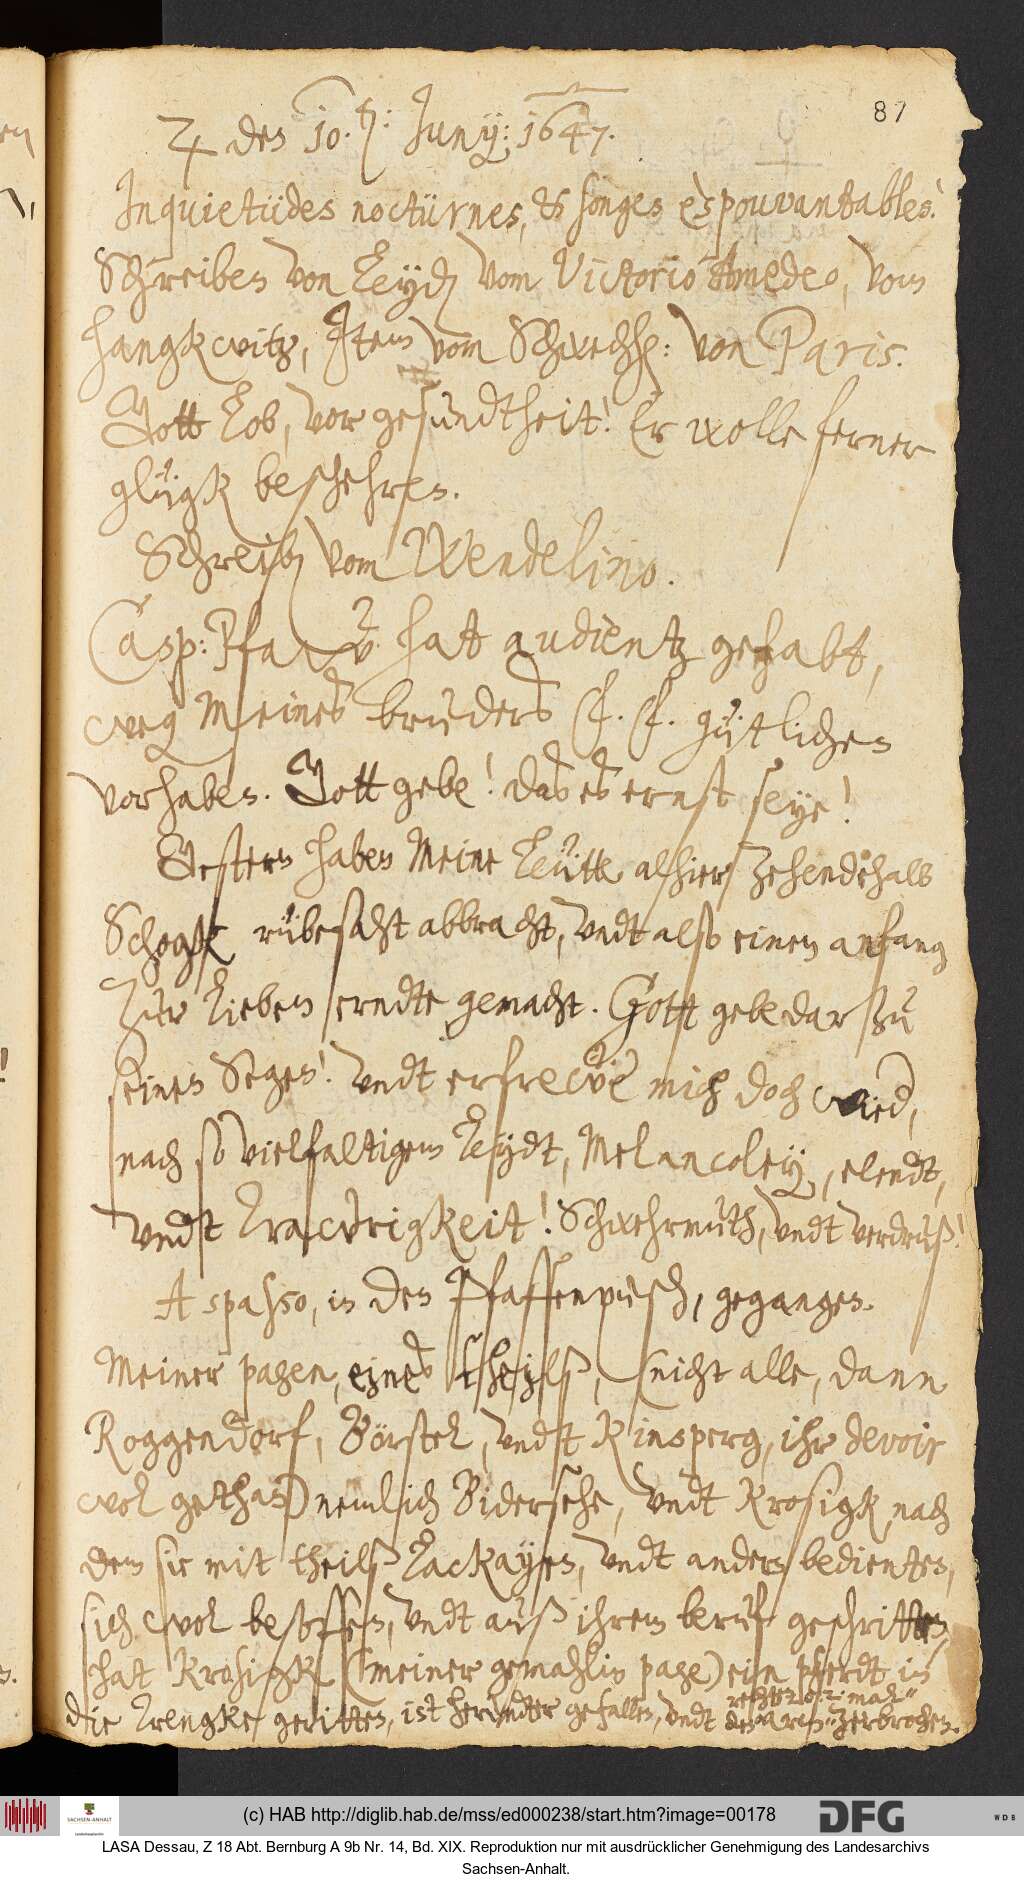 87
♃ den 10.den: Junij: 1647.
Inquietüdes noctürnes, et songes èspouvantables.
Schreiben von Leyden vom Victorio Amedeo, vom
Hangkwitz, Item vom Schwechh: von Paris.
Gott Lob, vor gesundtheit! Er wolle ferner
glügk beschehren.
Schreiben vom Wendelino.
Casp: Pfaw hat audientz gehabt,
weg Meines bruders gütlichen
vorhaben. Gott gebe! das es ernst seye!
Gestern haben Meine Leütte alhier zehendehalb
Schogk rübesaht abbracht, undt also einen anfang
Zur Lieben erndte gemacht. Gott gebe darzu
seinen Segen! undt erfrewe mich doch wied,
nach so vielfaltigem Leydt, Melancoley, elendt,
undt Trawrigkeit! Schwehrmuth, undt verdruß!
A spasso, in den Pfaffenpusch, gegangen.
Meiner pagen, eines theilß, (nicht alle, dann
Roggendorf, Börstel, undt Rinsperg, ihr devoir
wol gethan) nemlich Biedersehe, undt Krosigk nach
dem sie mit theilß Lackayen, undt andern bedienten,
sich wol besoffen, undt auß ihrem beruf geschritten,
hat Krosigk (meiner gemahlin page) ein pferdt in
die Trengke geritten, ist herundter gefallen, undt den arm zerbrochen.
(c) HAB http://diglib.hab.de/mss/ed000238/start.htm?image=00178
SACHSEN-ANHALT
DFG
WDB
LASA Dessau, Z 18 Abt. Bernburg A 9b Nr. 14, Bd. XIX. Reproduktion nur mit ausdrücklicher Genehmigung des Landesarchivs
Sachsen-Anhalt.